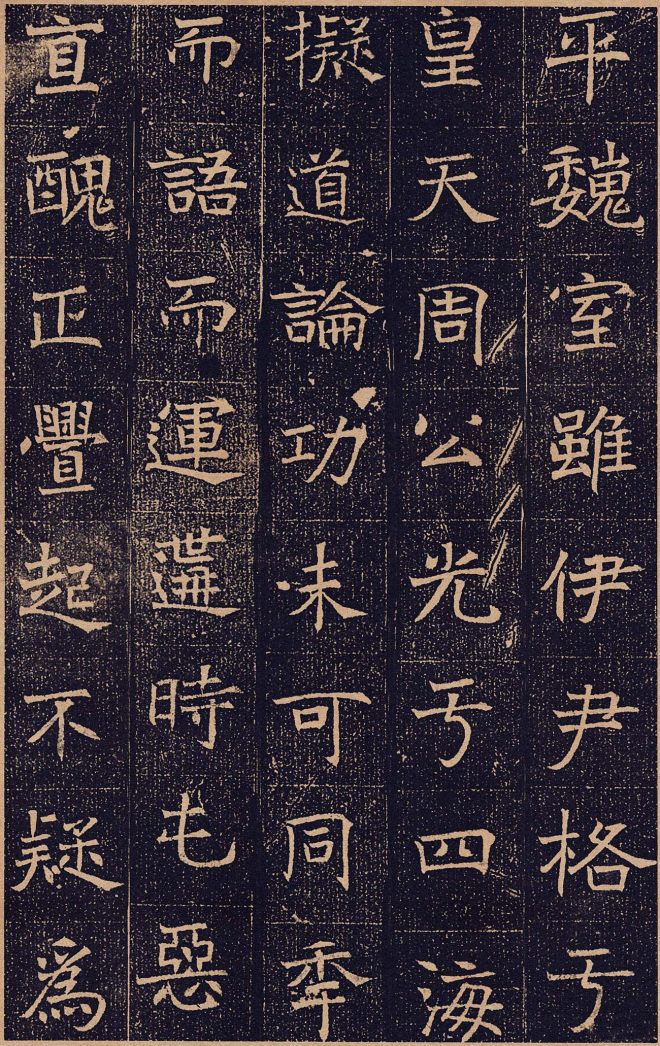 平魏室雖伊尹格亐
皇天周公光亐四海
擬道論功未可同秊
而語而運遘時屯惡
直醜正舋起不疑爲